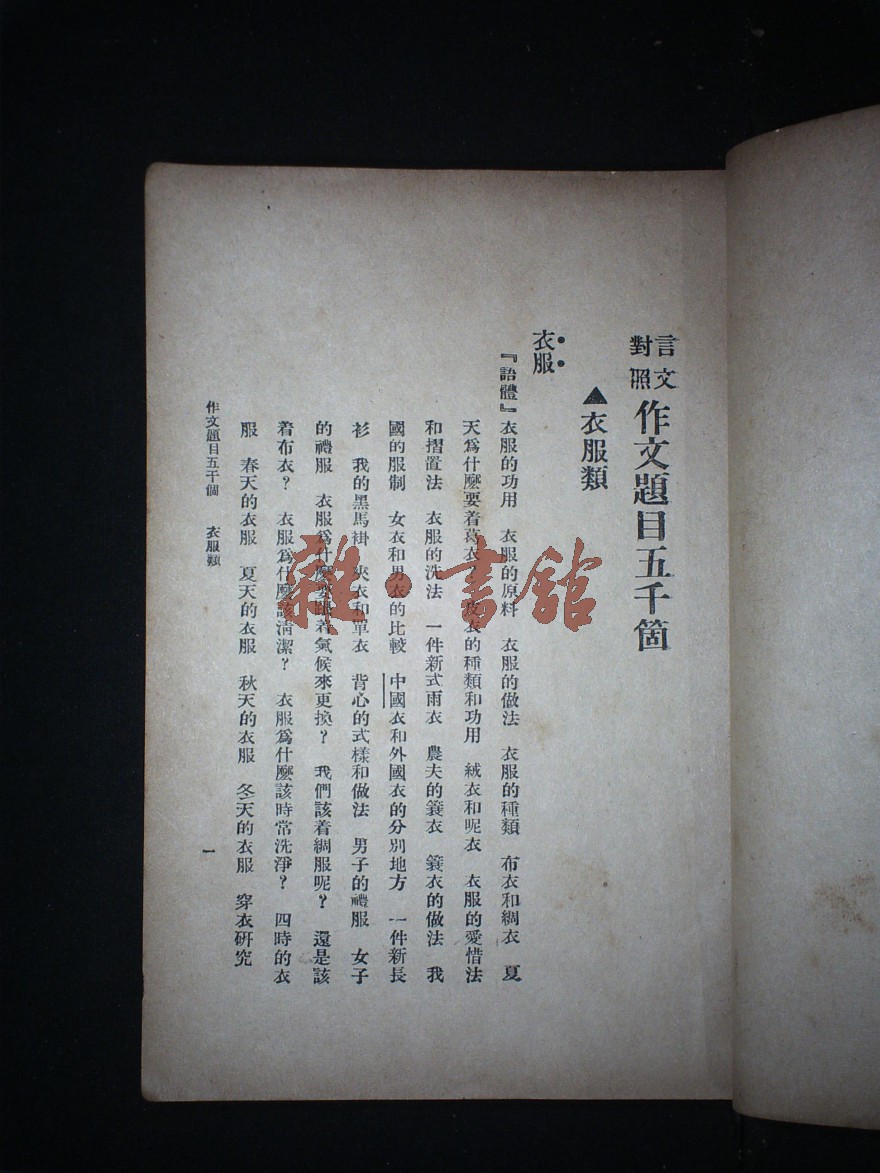 言文對照 作文題目五千箇
▲衣服類
衣服
『語體』衣服的功用　衣服的原料　衣服的做法　衣服的種類　布衣和綢衣　夏
天爲什麼要着葛衣？　皮衣的種類和功用　絨衣和呢衣　衣服的愛惜法
和摺置法　衣服的洗法　一件新式雨衣　農夫的簑衣　簑衣的做法　我
國的服制　女衣和男衣的比較　中國衣和外國衣的分別地方　一件新長
衫　我的黑馬褂　夾衣和單衣　背心的式樣和做法　男子的禮服　女子
的禮服　衣服爲什麼要跟着氣候來更換？　我們該着綢服呢？　還是該
着布衣？　衣服爲什麼該清潔？　衣服爲什麼該時常洗淨？　四時的衣
服　春天的衣服　夏天的衣服　秋天的衣服　冬天的衣服　穿衣研究
作文題目五千個　衣服類
一
雜·書館